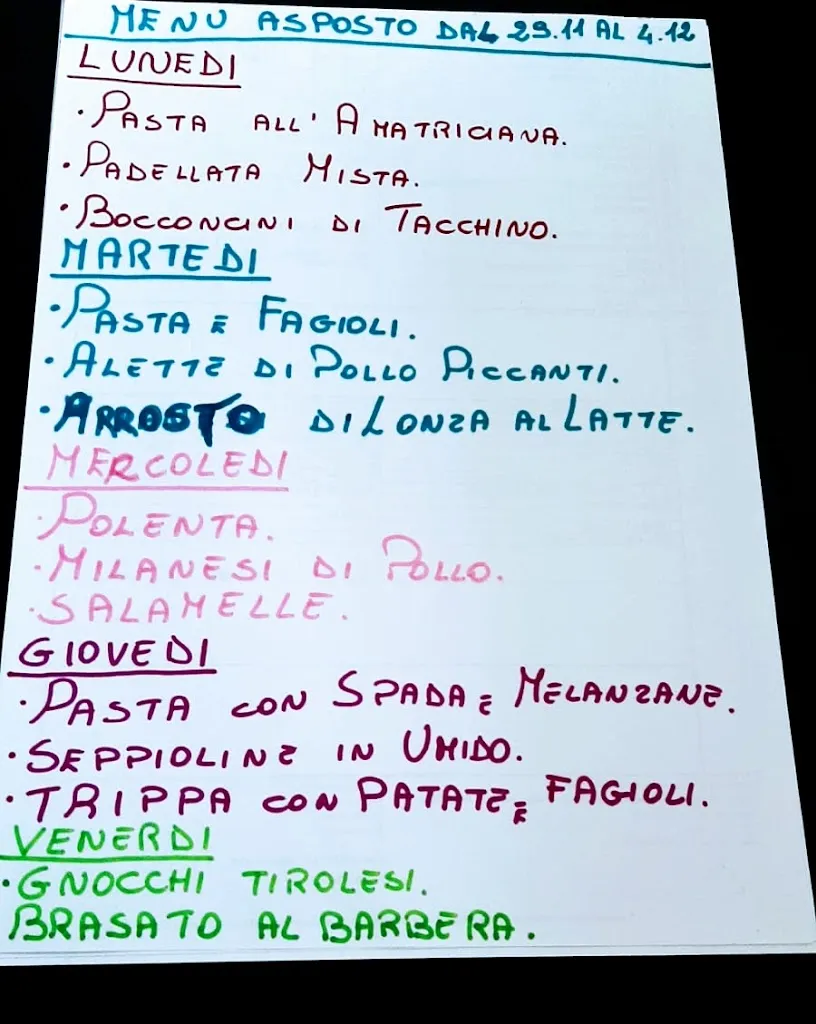 MENU ASPOSTO DAL 29.11 AL 4.12
LUNEDI
• PASTA ALL' AMATRICIANA.
• PADELLATA MISTA.
• BOCCONCINI DI TACCHINO.
MARTEDI
• PASTA E FAGIOLI.
• ALETTE DI POLLO PICCANTI.
• ARROSTO DI LONZA AL LATTE.
MERCOLEDI
• POLENTA.
• MILANESI DI POLLO.
• SALAMELLE.
GIOVEDI
• PASTA CON SPADA E MELANZANE.
• SEPPIOLINE IN UMIDO.
• TRIPPA CON PATATE E FAGIOLI.
VENERDI
• GNOCCHI TIROLESI.
BRASATO AL BARBERA.